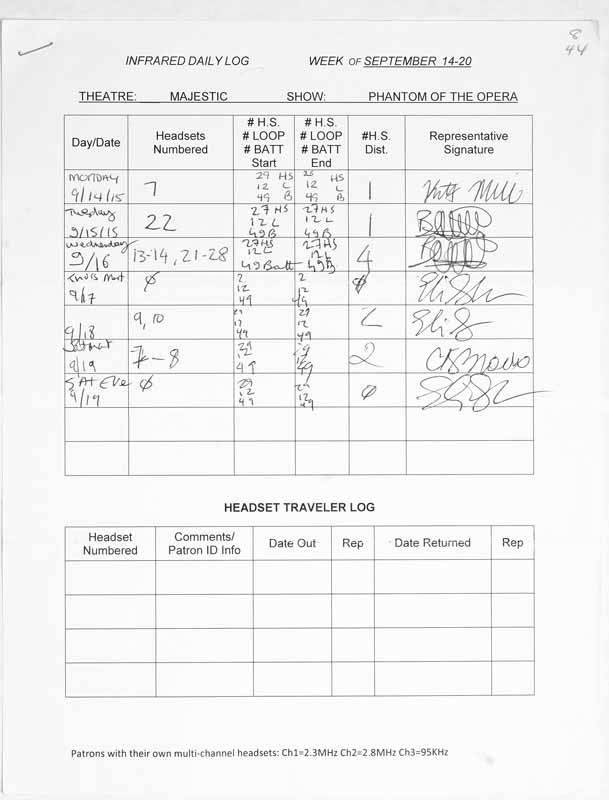 8
44
INFRARED DAILY LOG WEEK OF SEPTEMBER 14-20
THEATRE: MAJESTIC SHOW: PHANTOM OF THE OPERA
Day/Date
Headsets
Numbered
# H.S.
# LOOP
# BATT
Start
# H.S.
# LOOP
# BATT
End
#H.S.
Dist.
Representative
Signature
MONDAY
9/14/15
7
29 HS
12 L
49 B
HS
12 L
49 B
1
Tuesday
9/15/15
22
27HS
12 L
49B
27HS
12 L
49B
1
Wednesday
9/16
13-14, 21-28
27HS
12L
49Batt
27HS
12L
49B
4
9/17
ϕ
2
12
49
2
12
49
ϕ
9/18
9, 10
12
49
29
12
49
2
9/19
7-8
29
12
49
9
12
49
2
SAT Eve
9/19
ϕ
29
12
49
29
12
49
ϕ
HEADSET TRAVELER LOG
Headset
Numbered
Comments/
Patron ID Info
Date Out
Rep
Date Returned
Rep
Patrons with their own multi-channel headsets: Ch1=2.3MHz Ch2=2.8MHz Ch3=95KHz